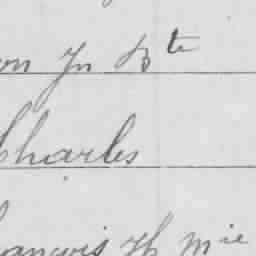 on Jn Bte
Charles
ançois X mie